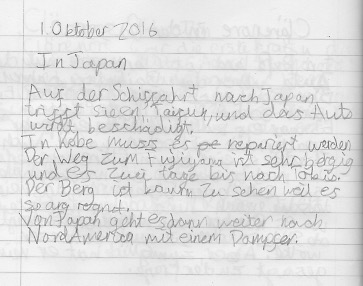 1. Oktober 2016
In Japan
Auf der Schissfahrt nach Japan
trifft sie ein Taifun, und das Auto
wird beschädigt.
In Kobe muss es repariert werden
Der Weg zum Fujiyama ist sehr bergig
und es zwei tage bis nach Tokio.
Der Berg ist kaum zu sehen weil es
so arg regnet.
Von Japan geht es dann weiter nach
Nord America mit einem Dampfer.